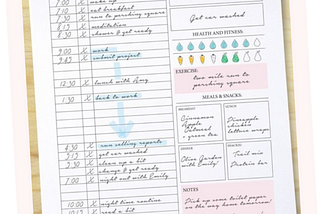 7:00 X wake up
7:20 X eat breakfast
7:30 X run to pershing square
8:15 X meditation
8:30 X shower & get ready
9:00 X work
9:40 X submit project
12:30 X lunch with Amy
1:30 X back to work
4:30 X run selling reports
5:15 X get car washed
5:30 X clean up a bit
X change & get ready
7:00 X night out with Emily
10:00 X night time routine
X read a bit
Get car washed
HEALTH AND FITNESS:
EXERCISE:
two mile run to
pershing square
MEALS & SNACKS:
BREAKFAST:
Cinnamon
Apple
Oatmeal
+ green tea
LUNCH:
Pineapple
chicken
lettuce wraps
DINNER:
Olive Garden
with Emily!
SNACKS:
Trail mix
Protein bar
NOTES
Pick up some toilet paper
on the way home tomorrow!